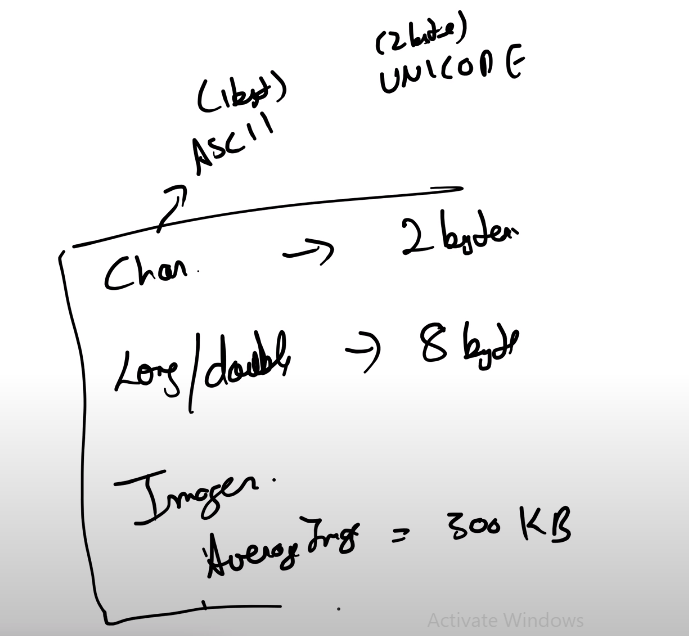 (2 byte)
UNICODE
(1 byt)
ASCII
Char → 2 bytes
Long/double → 8 byte
Images.
Average Img = 300 KB
Activate Windows